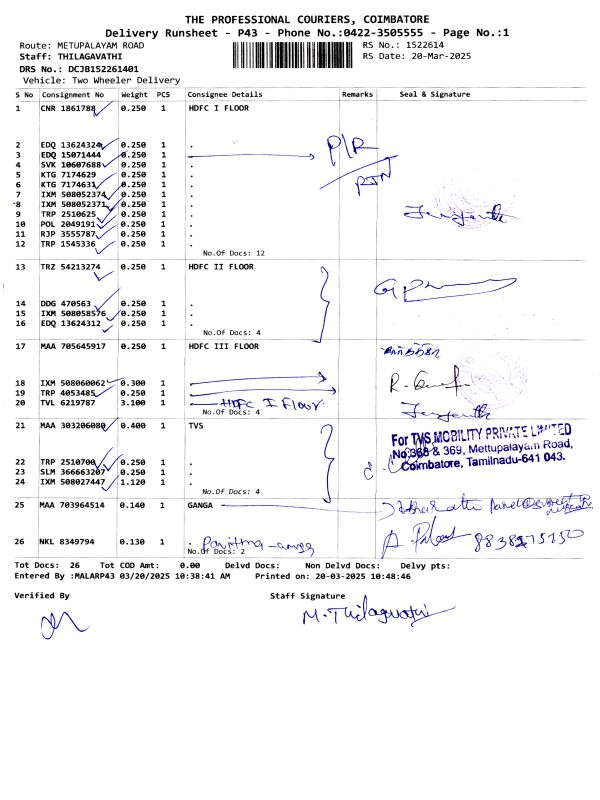 THE PROFESSIONAL COURIERS, COIMBATORE
Delivery Runsheet - P43 - Phone No.:0422-3505555 - Page No.:1
Route: METUPALAYAM ROAD RS No.: 1522614
Staff: THILAGAVATHI RS Date: 20-Mar-2025
DRS No.: DCJB152261401
Vehicle: Two Wheeler Delivery
S No Consignment No Weight PCS Consignee Details Remarks Seal & Signature
1 CNR 1861788 0.250 1 HDFC I FLOOR
2 EDQ 13624324 0.250 1 .
3 EDQ 15071444 0.250 1 P/R
4 SVK 10607688 0.250 1 .
5 KTG 7174629 0.250 1 .
6 KTG 7174631 0.250 1 .
7 IXM 508052374 0.250 1 .
8 IXM 508052371 0.250 1 .
9 TRP 2510625 0.250 1 .
10 POL 2049191 0.250 1 .
11 RJP 3555787 0.250 1 .
12 TRP 1545336 0.250 1 .
No.Of Docs: 12
13 TRZ 54213274 0.250 1 HDFC II FLOOR
14 DDG 470563 0.250 1 .
15 IXM 508058576 0.250 1 .
16 EDQ 13624312 0.250 1 .
No.Of Docs: 4
17 MAA 705645917 0.250 1 HDFC III FLOOR
18 IXM 508060062 0.300 1
19 TRP 4053485 0.250 1
20 TVL 6219787 3.100 1 HDFC I Floor
No.Of Docs: 4
21 MAA 303206080 0.400 1 TVS
For TVS MOBILITY PRIVATE LIMITED
No.368 & 369, Mettupalayam Road,
Coimbatore, Tamilnadu-641 043.
22 TRP 2510700 0.250 1 .
23 SLM 366663207 0.250 1 .
24 IXM 508027447 1.120 1 .
No.Of Docs: 4
25 MAA 703964514 0.140 1 GANGA
26 NKL 8349794 0.130 1 .
No.Of Docs: 2
Tot Docs: 26 Tot COD Amt: 0.00 Delvd Docs: Non Delvd Docs: Delvy pts:
Entered By :MALARP43 03/20/2025 10:38:41 AM Printed on: 20-03-2025 10:48:46
Verified By Staff Signature
M. Thilagavathi